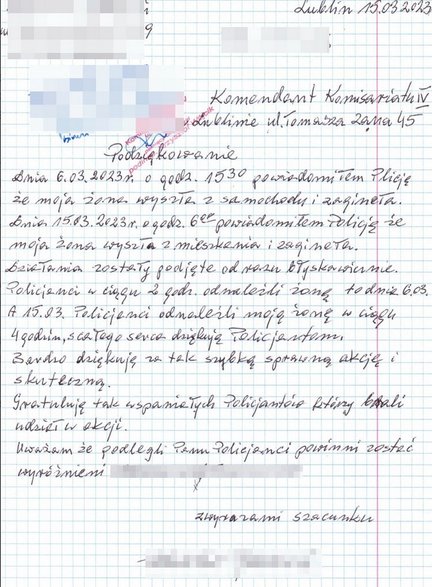 Lublin 15.03.2023
9
Komendant Komisariatu IV
w Lublinie ul. Tomasza Zana 45
Podziękowanie
Dnia 6.03.2023r. o godz. 15 30 powiadomiłem Policję
że moja żona wyszła z samochodu i zaginęła.
Dnia 15.03.2023r. o godz. 6 powiadomiłem Policję że
moja żona wyszła z mieszkania i zaginęła.
Działania zostały podjęte od razu błyskawicznie.
Policjanci w ciągu 2 godz. odnaleźli żonę to dnia 6.03.
A 15.03. Policjanci odnaleźli moją żonę w ciągu
4 godzin, z całego serca dziękuję Policjantom.
Bardzo dziękuję za tak szybką sprawną akcję i
skuteczną.
Gratuluję tak wspaniałych Policjantów którzy brali
udział w akcji.
Uważam że podlegli Panu Policjanci powinni zostać
wyróżnieni
z wyrazami szacunku